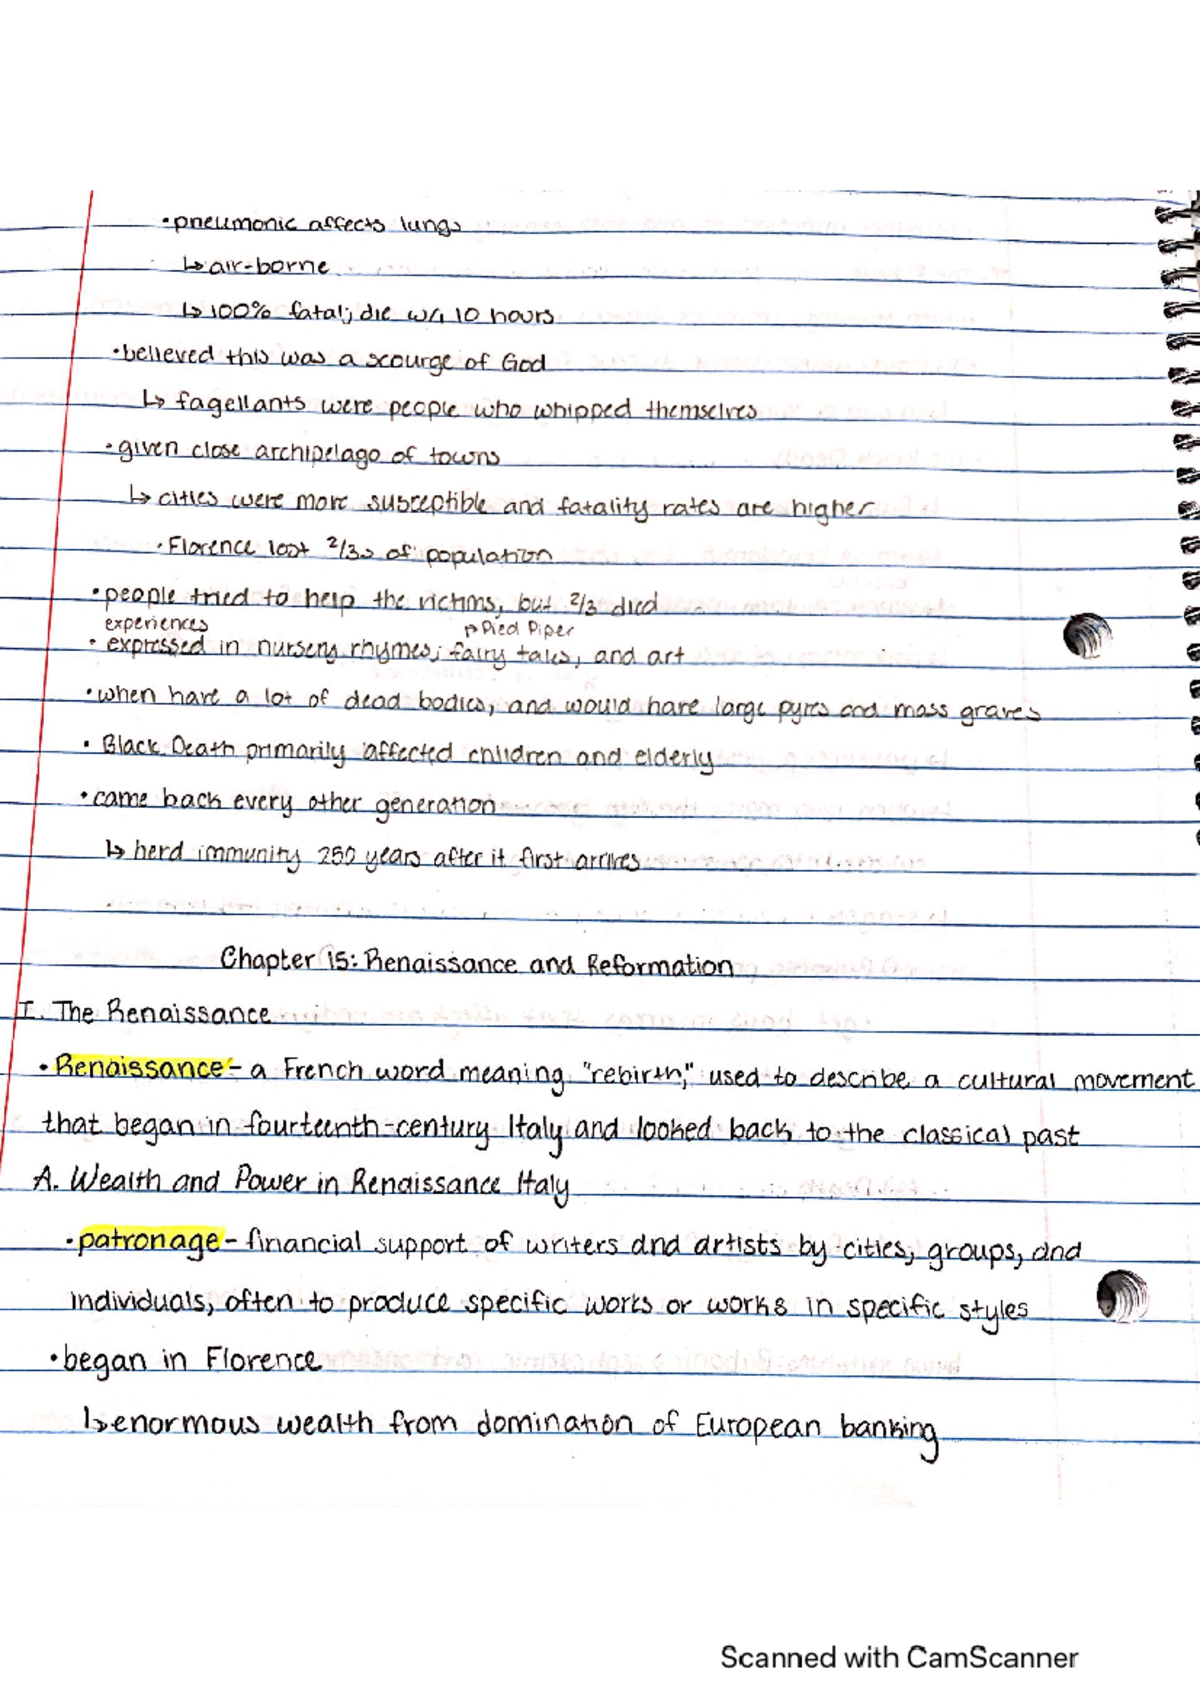 • pneumonic affects lungs
↳ air-borne
↳ 100% fatal; die w/i 10 hours
• believed this was a scourge of God
↳ fagellants were people who whipped themselves
• given close archipelago of towns
↳ cities were more susceptible and fatality rates are higher
• Florence lost 2/3s of population
• people tried to help the victims, but 2/3 died
experiences ↱ Pied Piper
• expressed in nursery rhymes, fairy tales, and art
• when have a lot of dead bodies, and would have large pyres and mass graves
• Black Death primarily affected children and elderly
• came back every other generation
↳ herd immunity 250 years after it first arrives
Chapter 15: Renaissance and Reformation
I. The Renaissance
• Renaissance - a French word meaning "rebirth," used to describe a cultural movement
that began in fourteenth-century Italy and looked back to the classical past
A. Wealth and Power in Renaissance Italy
• patronage - financial support of writers and artists by cities, groups, and
individuals, often to produce specific works or works in specific styles
• began in Florence
↳ enormous wealth from domination of European banking
Scanned with CamScanner